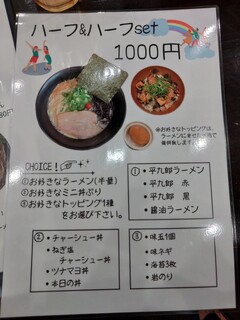 ハーフ&ハーフset
1000円
※お好きなトッピングは、
ラーメンに
CHOICE!
①お好きなラーメン(半量)
②お好きなミニ丼ぶり
③お好きなトッピング1種
をお選び下さい。
① ・平九郎ラーメン
・平九郎 赤
・平九郎 黒
・醤油ラーメン
② ・チャーシュー丼
・ねぎ塩
チャーシュー丼
・ツナマヨ丼
・本日の丼
③ ・味玉1個
・味ネギ
・海苔3枚
・岩のり